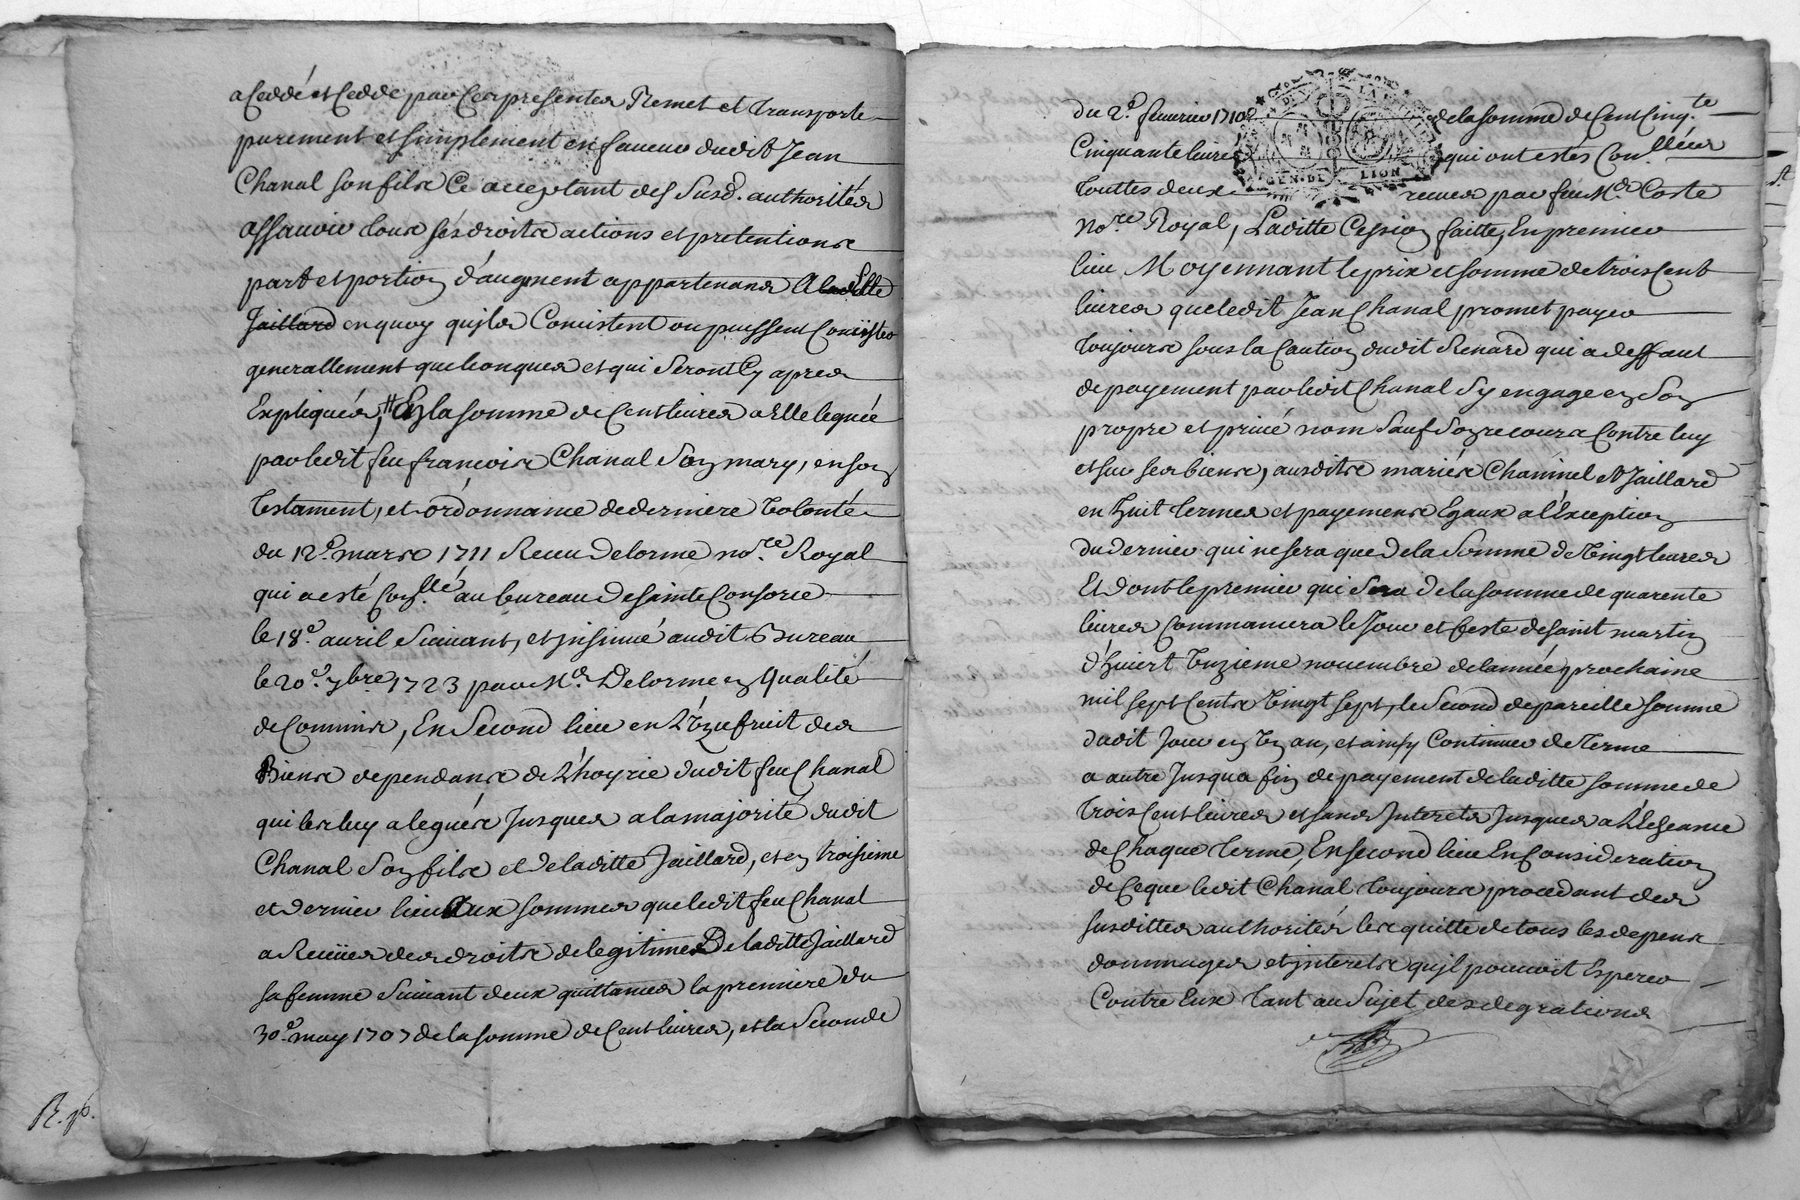 a Ceddé et Cedde par Ces presentes Remet et transporte
purement et simplement en faveur dudit Jean
Chanal son fils Ce acceptant des Susd. authorités
assavoir tous ses droits actions et pretentions
part et portion d'augment appartenans A laditte
Jaillard en quoy qu'ils Concistent ou puissent Conçister
generallement quelconques et qui seront Cy apres
Expliqués, En la somme de Cent livres a Elle leguée
par ledit feu françois Chanal Son mary, en son
testament, et ordonnance de derniere volonté
du 12e mars 1711 Receu Delorme nore Royal
qui a esté Conllé au bureau de sainte Consorce
le 18e avril Suivant, et insinué audit Bureau
le 20e 7bre 1723 par Me Delorme en Qualité
de Commis, En Second lieu en L'Uzufruit des
Biens dependans de L'hoyrie dudit feu Chanal
qui les luy a legués Jusques a la majorité dudit
Chanal Son fils et de laditte Jaillard, et en troisieme
et dernier lieu Aux sommes que ledit feu Chanal
a Receües des droits de legitimes De laditte Jaillard
sa femme Suivant deux quittances la premiere du
30e may 1707 de la somme de Cent livres, et la Seconde
du 2e fevrier 1710 de la somme de Cent Cinqte
Cinquante livres qui ont estés Conllées
touttes deux receues par feu Me Coste
nore Royal, Laditte Cession faitte, En premier
lieu Moyennant le prix et somme de trois Cent
livres que ledit Jean Chanal promet payer
toujours sous la Caution dudit Renard qui a deffaut
de payement par ledit Chanal S'y engage en Son
propre et privé nom Sauf Son recours Contre luy
et sur ses biens, ausdits mariés Chaninel et Jaillard
en huit termes et payemens Egaux a l'Exception
du dernier qui ne sera que de la Somme de Vingt livres
Et dont le premier qui Sera de la somme de quarente
livres Commancera le Jour et feste de saint martin
d'hivert Unzieme novembre de l'année prochaine
mil sept Cents Vingt sept, le Second de pareille somme
dudit Jour en Un an, et ainsy Continuer de terme
a autre Jusqua fin de payement de laditte somme de
trois Cent livres et sans Interets Jusques a L'Echeance
de Chaque terme, En second lieu En Consideration
de Ceque ledit Chanal toujours procedant des
susdittes authorités les quitte de tous les depens
dommages et interets qu'il pouvoit Esperer
Contre Eux tant au Sujet des degrations
GEN. DE LION
R. p.